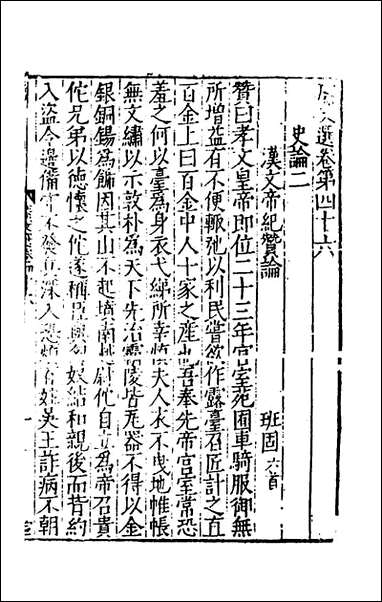 廣文選卷第四十六
史論二
漢文帝紀贊論 班固六首
贊曰孝文皇帝即位二十三年宮室苑囿車騎服御無
所增益有不便輒弛以利民嘗欲作露臺召匠計之直
百金上曰百金中人十家之産也吾奉先帝宮室常恐
羞之何以臺為身衣弋綈所幸慎夫人衣不曳地帷帳
無文繡以示敦朴為天下先治霸陵皆瓦器不得以金
銀銅錫為飾因其山不起墳南越尉佗自立為帝召貴
佗兄弟以德懷之佗遂稱臣與匈奴結和親後而背約
入盜令邊備守不發兵深入恐煩百姓吳王詐病不朝